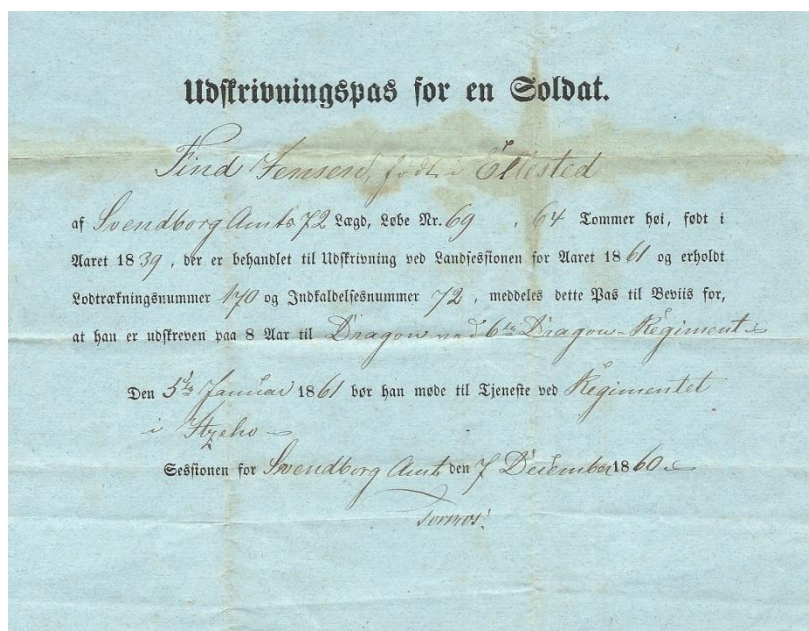 Udskrivningspas for en Soldat.
Find Jensen, født i Ellested
af Svendborg Amts 72 Lægd, Løbe Nr. 69 , 64 Tommer høi, født i
Aaret 1839, der er behandlet til Udskrivning ved Landsessionen for Aaret 1861 og erholdt
Lodtrækningsnummer 170 og Indkaldelsesnummer 72, meddeles dette Pas til Beviis for,
at han er udskreven paa 8 Aar til Dragon ved 6te Dragon-Regiment
Den 5te Januar 1861 bør han møde til Tjeneste ved Regimentet
i Itzeho
Sessionen for Svendborg Amt den 7 December 1860